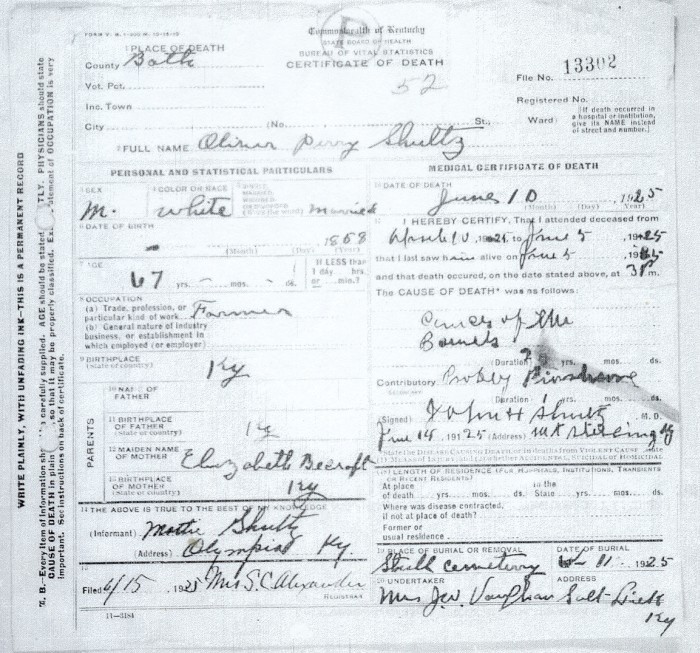 FORM V. S.
PLACE OF DEATH
County Bath
Vot. Pct.
Inc. Town
City (No. St., Ward)
Commonwealth of Kentucky
STATE BOARD OF HEALTH
BUREAU OF VITAL STATISTICS
CERTIFICATE OF DEATH
52
File No. 13302
Registered No.
(If death occurred in
a hospital or institution,
give its NAME instead
of street and number.)
FULL NAME Oliver Perry Shultz
PERSONAL AND STATISTICAL PARTICULARS
SEX
M.
COLOR OR RACE
white
SINGLE
MARRIED
WIDOWED
OR DIVORCED
(Write the word)
Married
DATE OF BIRTH
1858
(Month) (Day) (Year)
AGE
67 yrs. mos. ds.
If LESS than
1 day hrs.
or min.?
OCCUPATION
(a) Trade, profession, or
particular kind of work Farmer
(b) General nature of industry
business, or establishment in
which employed (or employer)
BIRTHPLACE
(State or country) Ky
PARENTS
10 NAME OF
FATHER
11 BIRTHPLACE
OF FATHER
(State or country) Ky
12 MAIDEN NAME
OF MOTHER Elizabeth Becroft
13 BIRTHPLACE
OF MOTHER
(State or country) Ky
14 THE ABOVE IS TRUE TO THE BEST OF MY KNOWLEDGE
(Informant) Mattie Shultz
(Address) Olympia Ky.
Filed 6/15 1925 Mrs S. C. Alexander
REGISTRAR
11-3184
MEDICAL CERTIFICATE OF DEATH
DATE OF DEATH
June 10 1925
(Month) (Day) (Year)
I HEREBY CERTIFY, That I attended deceased from
April 10 1925, to June 5 1925
that I last saw him alive on June 5 1925
and that death occured, on the date stated above, at 3 P m.
The CAUSE OF DEATH* was as follows:
Cancer of the
Bowels
(Duration) yrs. mos. ds.
Contributory
(Duration) yrs. mos. ds.
(Signed) John H Shultz M. D.
June 14 1925 (Address) Mt Sterling Ky
LENGTH OF RESIDENCE (FOR HOSPITALS, INSTITUTIONS, TRANSIENTS
OR RECENT RESIDENTS)
At place
of death yrs. mos. ds.
In the
State yrs. mos. ds.
Where was disease contracted,
if not at place of death?
Former or
usual residence
19 PLACE OF BURIAL OR REMOVAL
Shultz cemetery
DATE OF BURIAL
6-11 1925
20 UNDERTAKER
Mrs J. W. Vaughan
ADDRESS
Salt Lick
Ky
WRITE PLAINLY, WITH UNFADING INK—THIS IS A PERMANENT RECORD
N. B.—Every item of information carefully supplied. AGE should be stated PHYSICIANS should state
CAUSE OF DEATH in plain so that it may be properly classified. statement of OCCUPATION is very
important. See instructions on back of certificate.